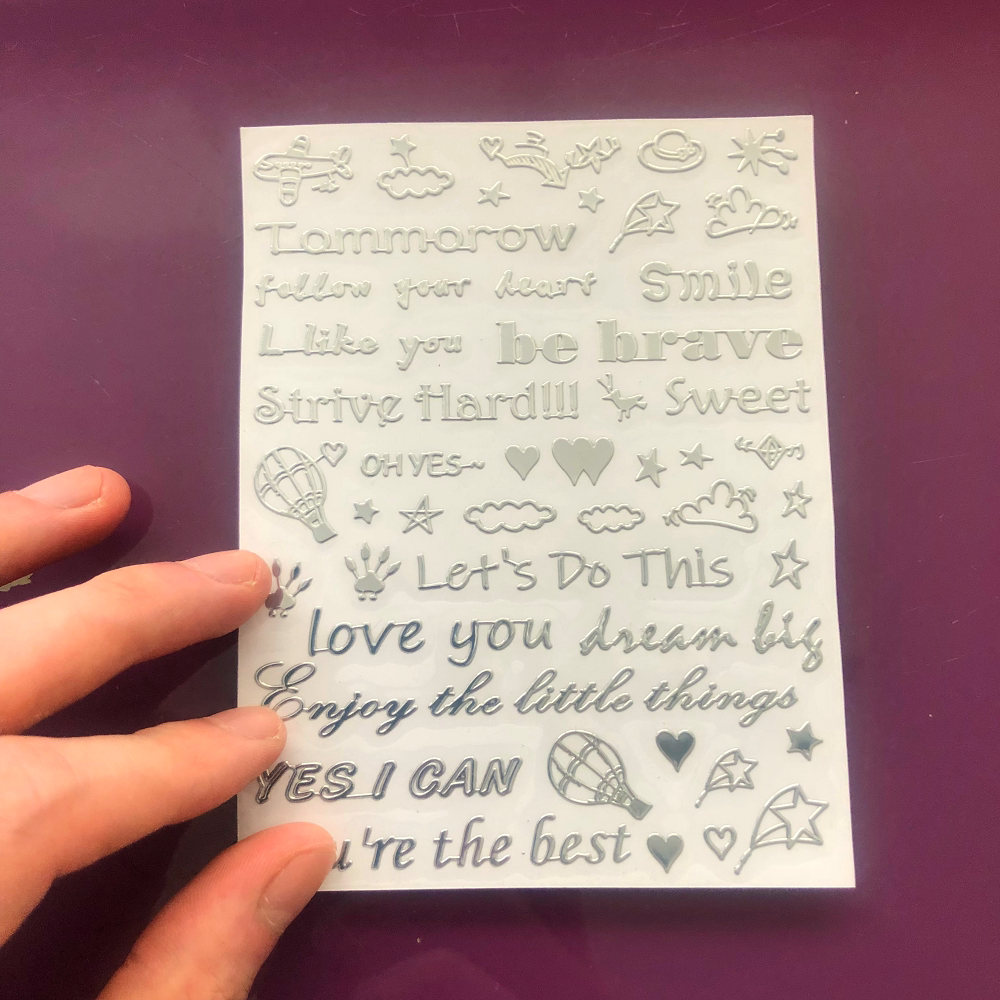 Tommorow
follow your heart Smile
I like you be brave
Strive Hard!!! Sweet
OH YES~
Let's Do This
love you dream big
Enjoy the little things
YES I CAN
u're the best